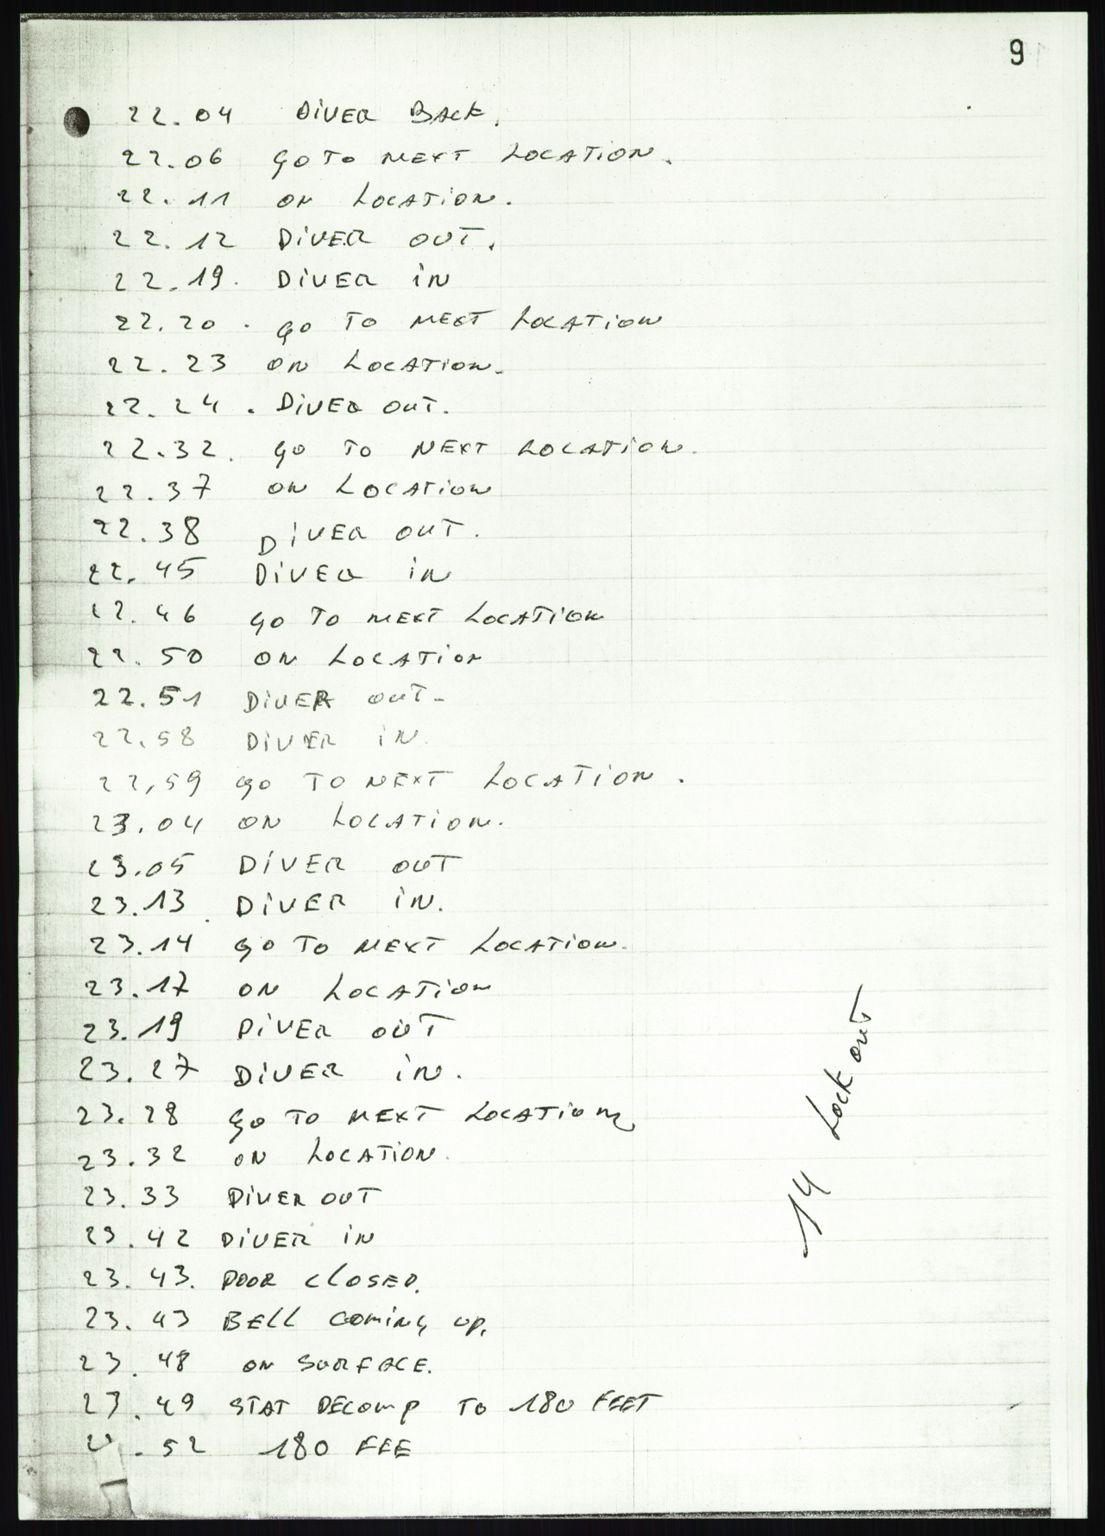 9
22.04 DIVER BACK.
22.06 GO TO NEXT LOCATION.
22.11 ON LOCATION.
22.12 DIVER OUT.
22.19. DIVER IN
22.20. GO TO NEXT LOCATION
22.23 ON LOCATION.
22.24. DIVER OUT.
22.32. GO TO NEXT LOCATION.
22.37 ON LOCATION
22.38 DIVER OUT.
22.45 DIVER IN
22.46 GO TO NEXT LOCATION
22.50 ON LOCATION
22.51 DIVER OUT-
22.58 DIVER IN.
22,59 GO TO NEXT LOCATION.
23.04 ON LOCATION.
23.05 DIVER OUT
23.13 DIVER IN.
23.14 GO TO NEXT LOCATION.
23.17 ON LOCATION
23.19 DIVER OUT
23.27 DIVER IN.
23.28 GO TO NEXT LOCATION
23.32 ON LOCATION.
23.33 DIVER OUT
23.42 DIVER IN
23.43. DOOR CLOSED.
23.43 BELL COMING UP.
23.48 ON SURFACE.
23.49 STAT DECOMP TO 180 FEET
.52 180 FEE
14 LOCK OUT